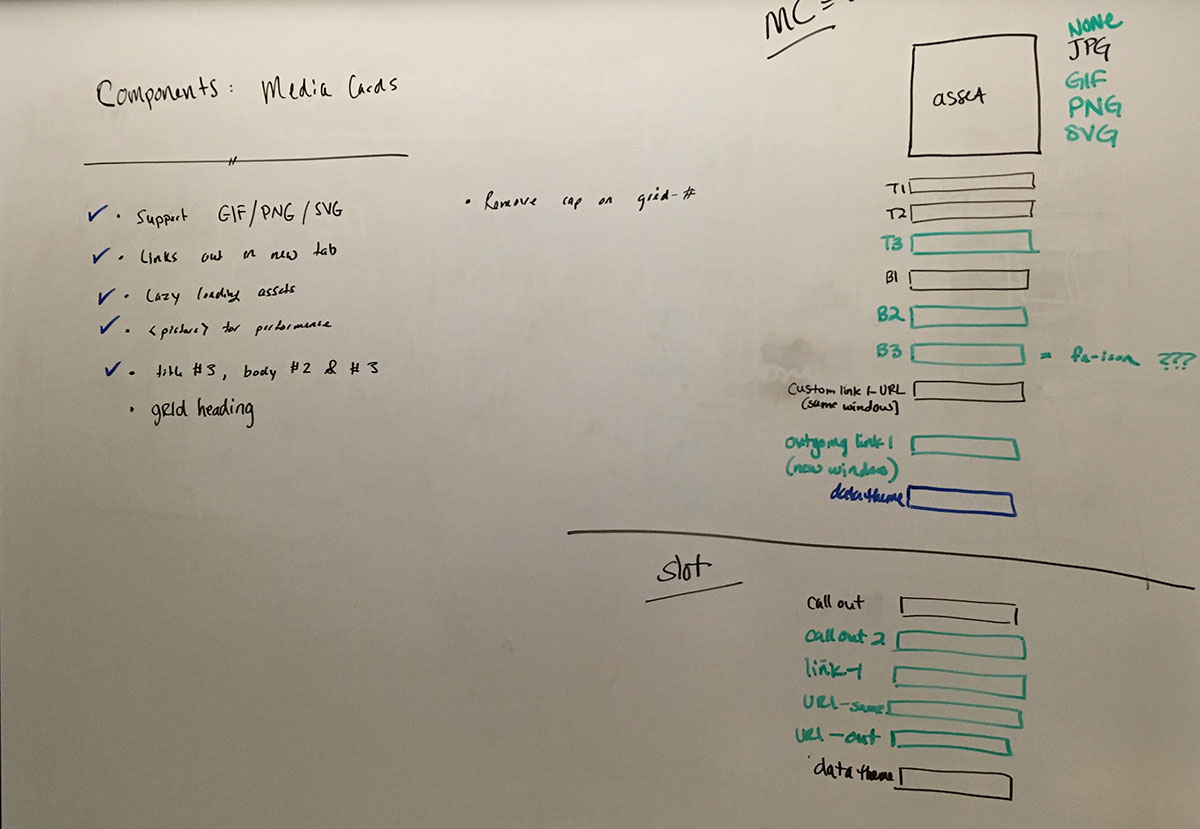 Components: Media Cards
• Support GIF/PNG/SVG
• Links out in new tab
• Lazy loading assets
• <picture> for performance
• title #3, body #2 & #3
• grid heading
• Remove cap on grid-#
MC =
asset
NONE
JPG
GIF
PNG
SVG
T1
T2
T3
B1
B2
B3 = fa-icon ???
Custom link 1-URL
(same window)
outgoing link 1
(new window)
data theme
slot
call out
call out 2
link-1
URL-same
URL-out
data theme